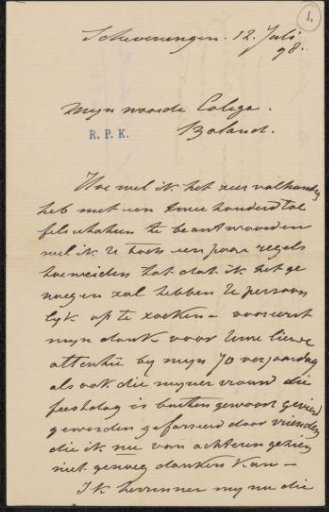 1.
Scheveningen. 12. Juli
98.
Mijn waarde Colega.
R. P. K.
Boland.
Hoe wel ik het zeer volhandig
heb met een twee honderd tal
felicitaties te beantwoorden
wil ik U toch een paar regels
toewijden tot dat ik het ge
noegen zal hebben U persoon
lijk op te zoeken – vooreerst
mijn dank voor Uwe lieve
attentie by mijn 70 verjaardag
als ook die mijner vriend die
feestdag is buiten gewoon gevierd
geworden geforseerd door vrienden
die ik nu van achteren gezien
niet genoeg danken kan –
Ik herinner mij nu die